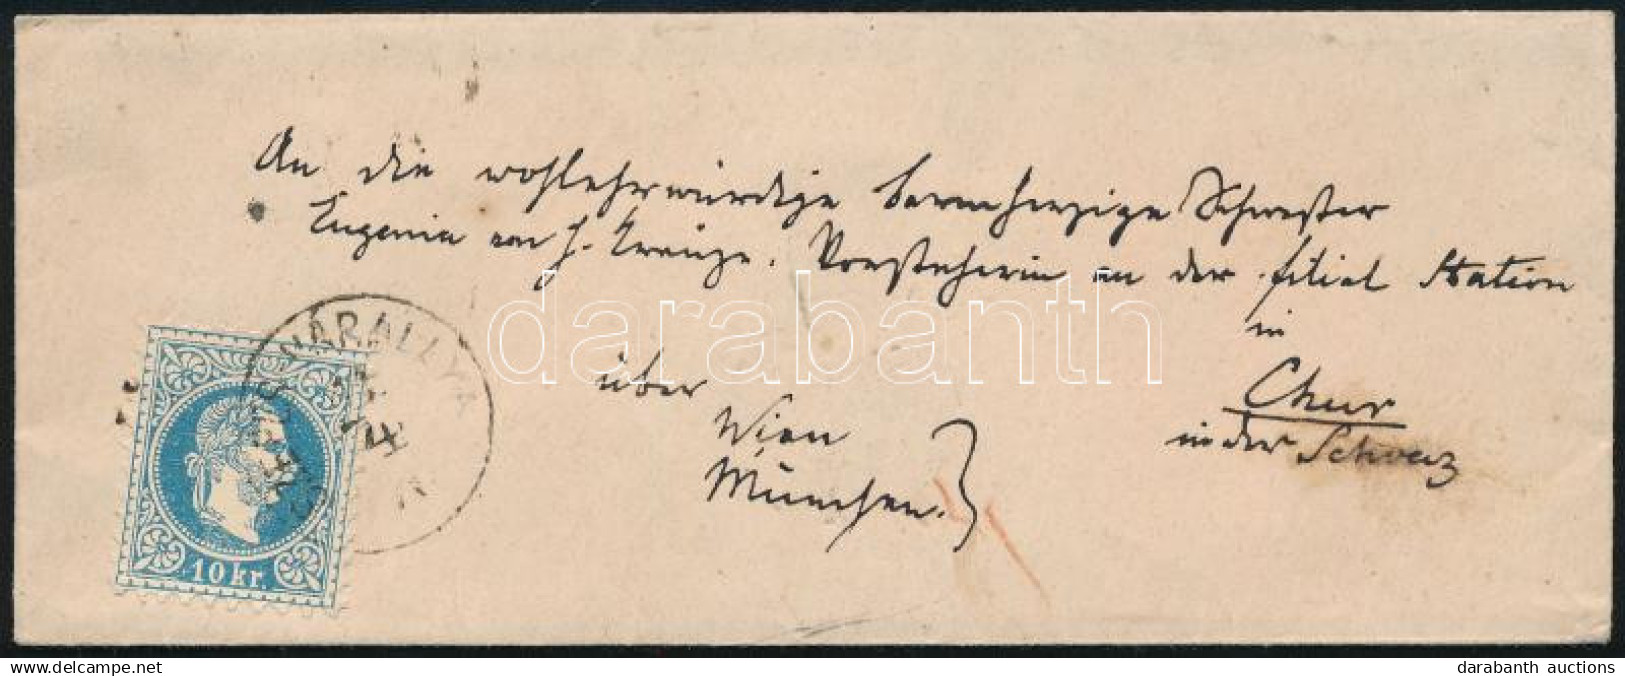 An die wohlehrwürdige barmherzige Schwester
Eugenia von H. Kreuze. Vorsteherin an der filial Station
in
über
Chur
Wien
in der Schweiz
München.
VÁRALLYA
10 kr.
darabanth
www.delcampe.net
darabanth auctions